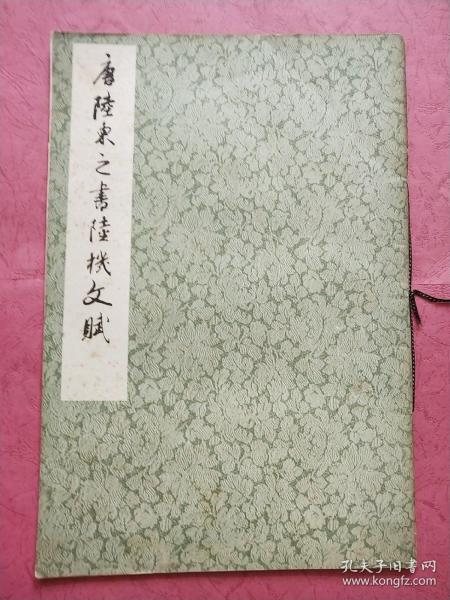 唐陸柬之書陸機文賦
孔夫子旧书网
www.kongfz.com